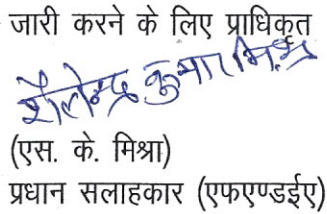 जारी करने के लिए प्राधिकृत
शैलेन्द्र कुमार मिश्र
(एस. के. मिश्रा)
प्रधान सलाहकार (एफएण्डईए)